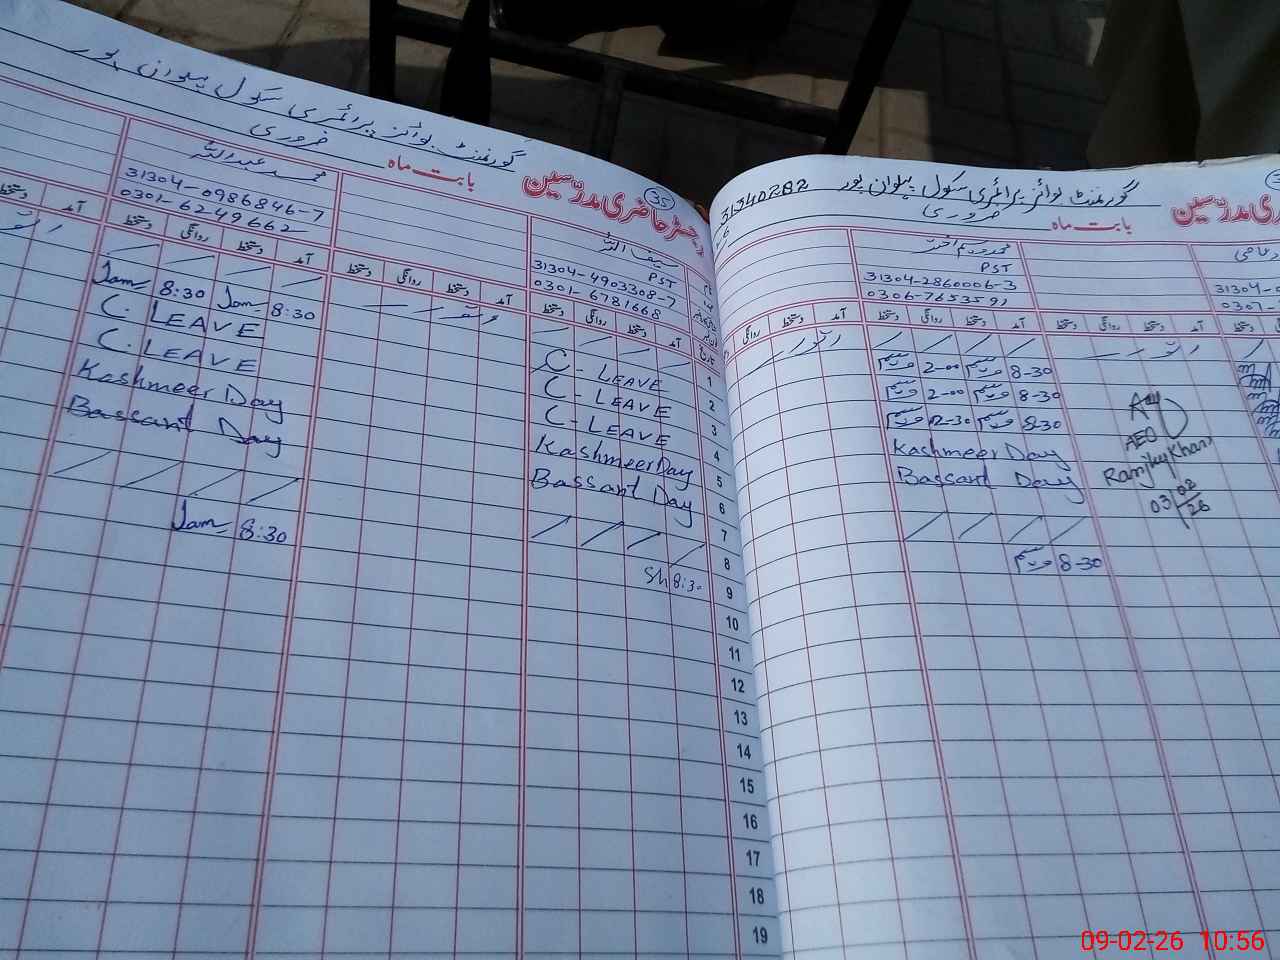 گورنمنٹ بوائز پرائمری سکول پہلوان پور
رجسٹر حاضری مدرّسین
35
بابت ماہ فروری
محمد عبداللہ
31304-0986846-7
0301-6249662
آمد دستخط روانگی دستخط
اتوار
Jam 8:30 Jam 8:30
C. LEAVE
C. LEAVE
Kashmeer Day
Bassant Day
Jam 8:30
سیف اللہ
PST
31304-4903308-7
0301-6781668
آمد دستخط روانگی دستخط
تاریخ
اتوار
C- LEAVE
C- LEAVE
C- LEAVE
Kashmeer Day
Bassant Day
Sh 8:30
1
2
3
4
5
6
7
8
9
10
11
12
13
14
15
16
17
18
19
31340282 گورنمنٹ بوائز پرائمری سکول پہلوان پور
بابت ماہ فروری
ری مدرّسین
محمد وسیم اختر
PST
31304-2860006-3
0306-7653591
آمد دستخط روانگی دستخط
اتوار
8-30 وسیم 2-00 وسیم
8-30 وسیم 2-00 وسیم
8-30 وسیم 12-30 وسیم
Kashmeer Day
Bassant Day
8-30 وسیم
AEO
Ranjhy Khan
03/02/26
31304-
0307-
09-02-26 10:56